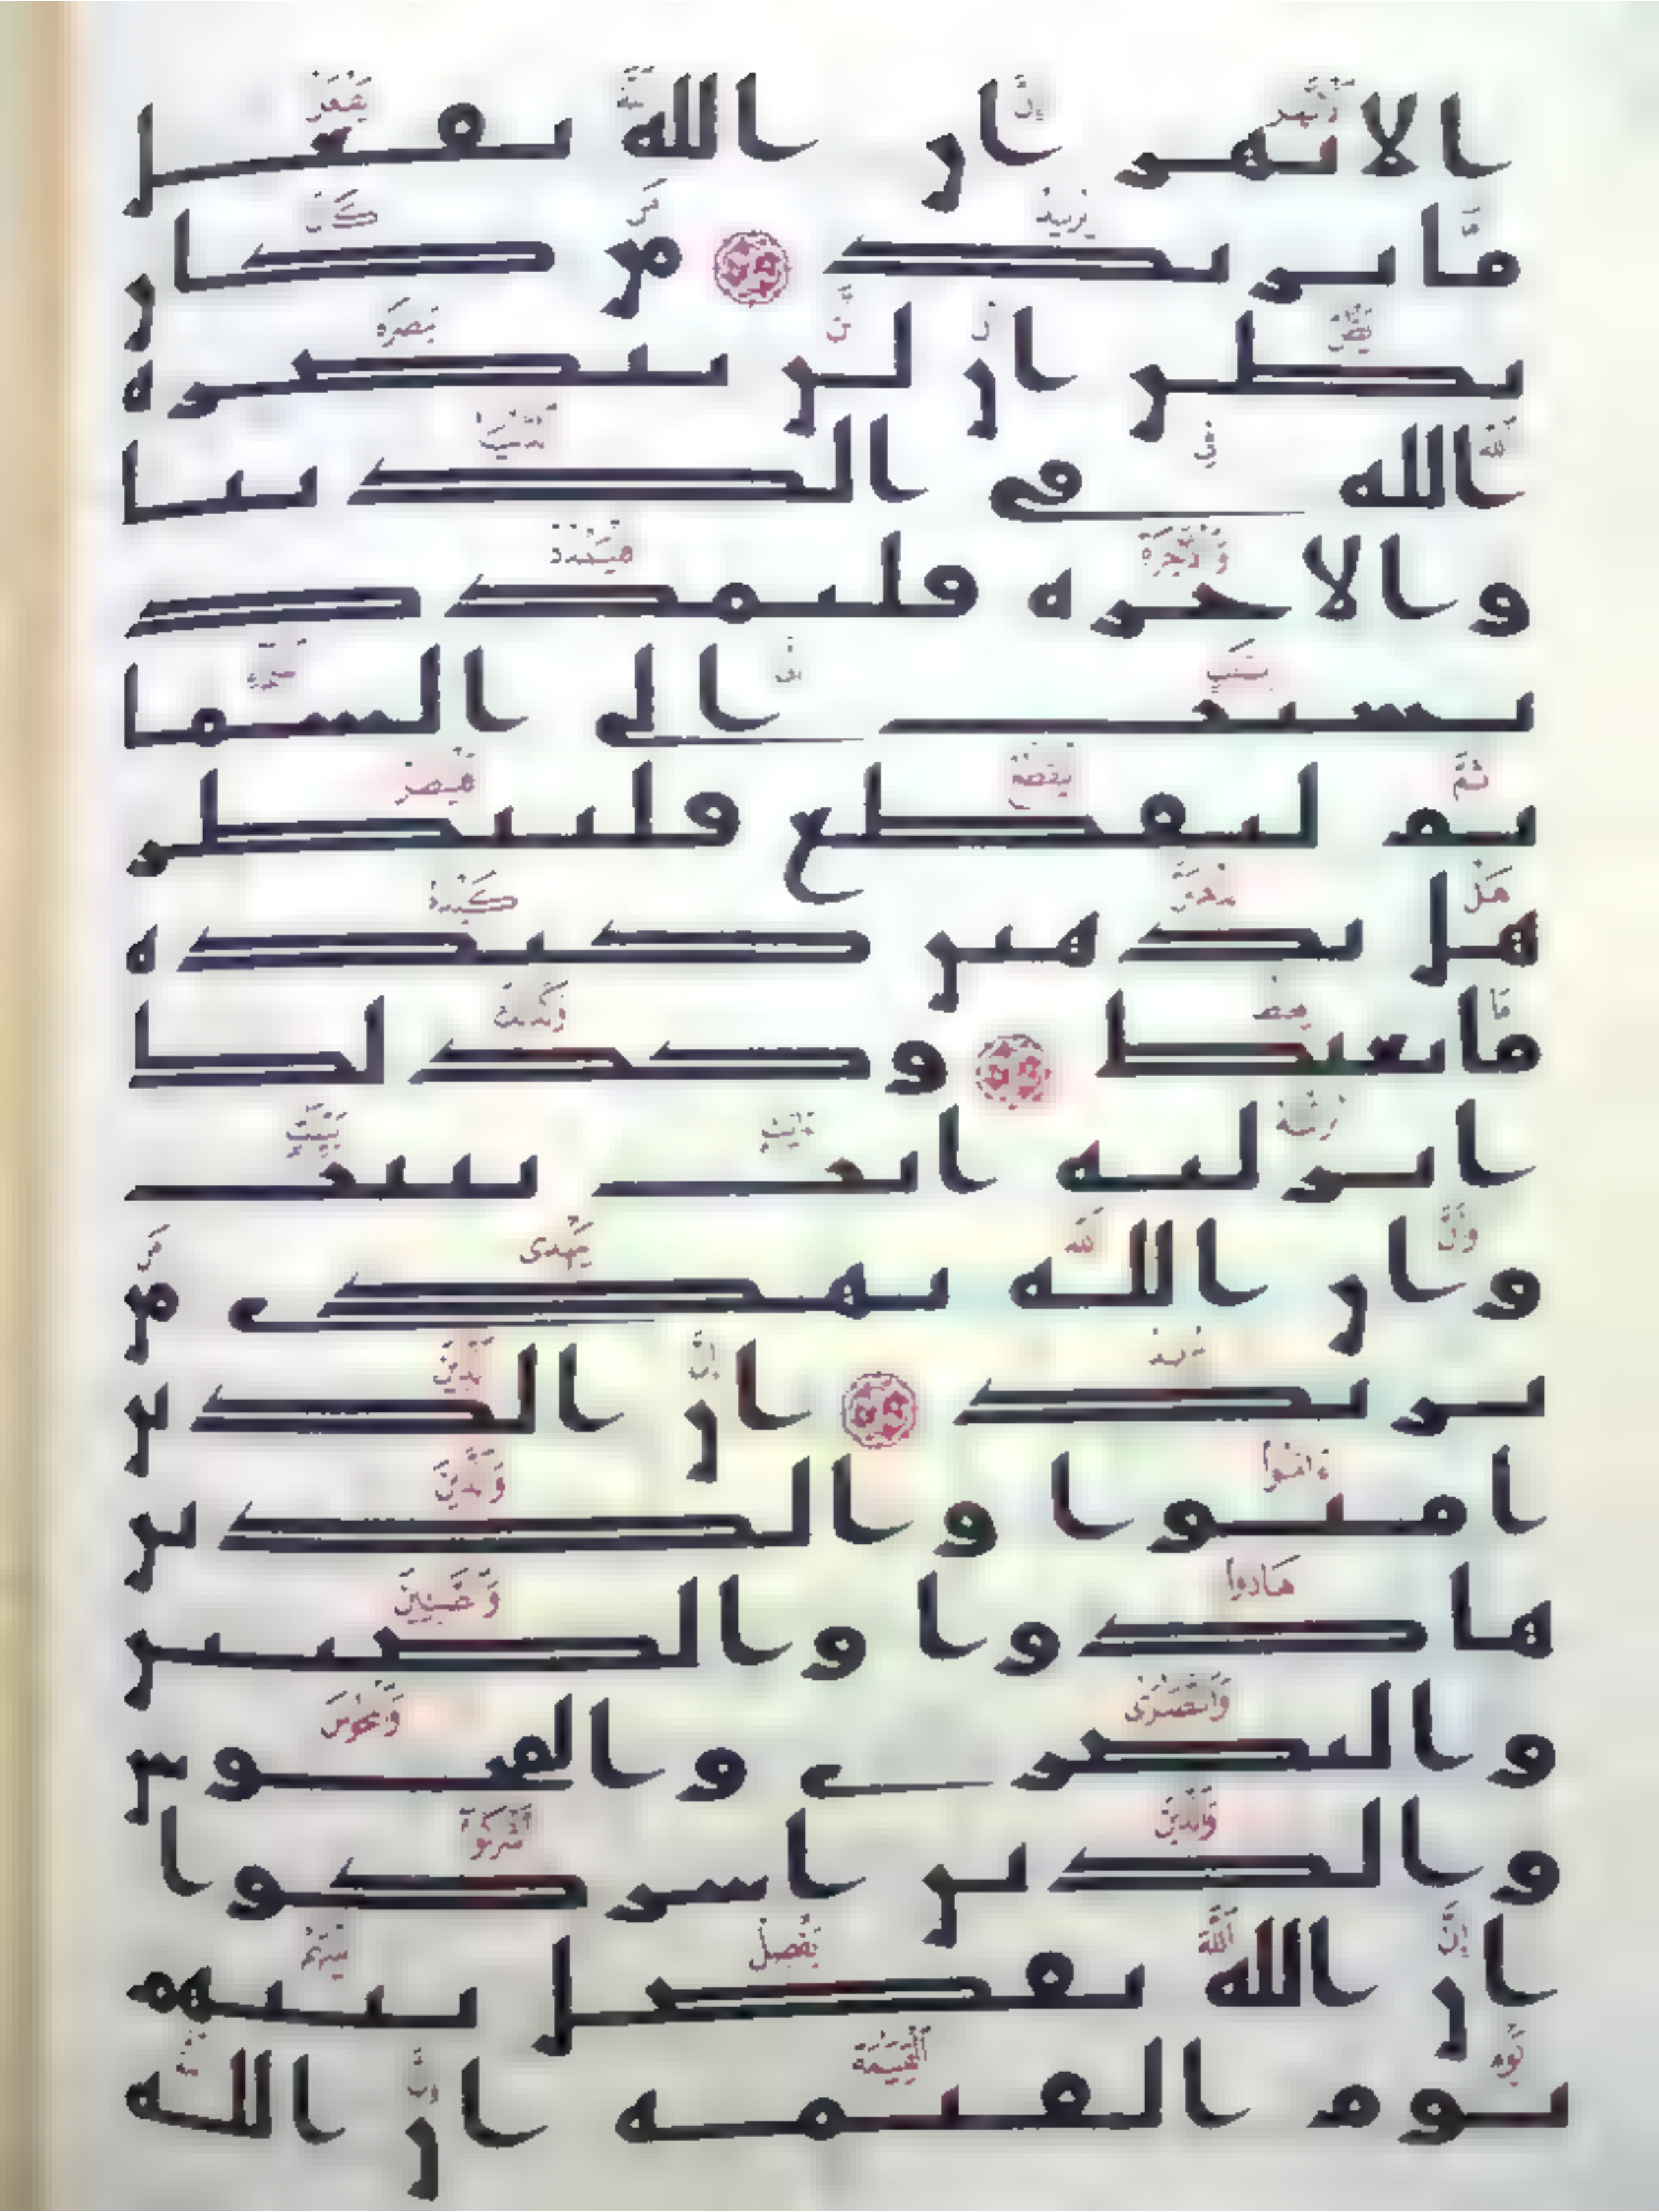 الانهر ان الله يفعل
ما يريد من كان
يظن ان لن ينصره
الله في الدنيا
والاخرة فليمدد
بسبب الى السما
ثم ليقطع فلينظر
هل يذهبن كيده
ما يغيظ وكذلك
انزلنه ايت بينت
وان الله يهدي من
يريد ان الذين
امنوا والذين
هادوا والصبين
والنصرى والمجوس
والذين اشركوا
ان الله يفصل بينهم
يوم القيمة ان الله